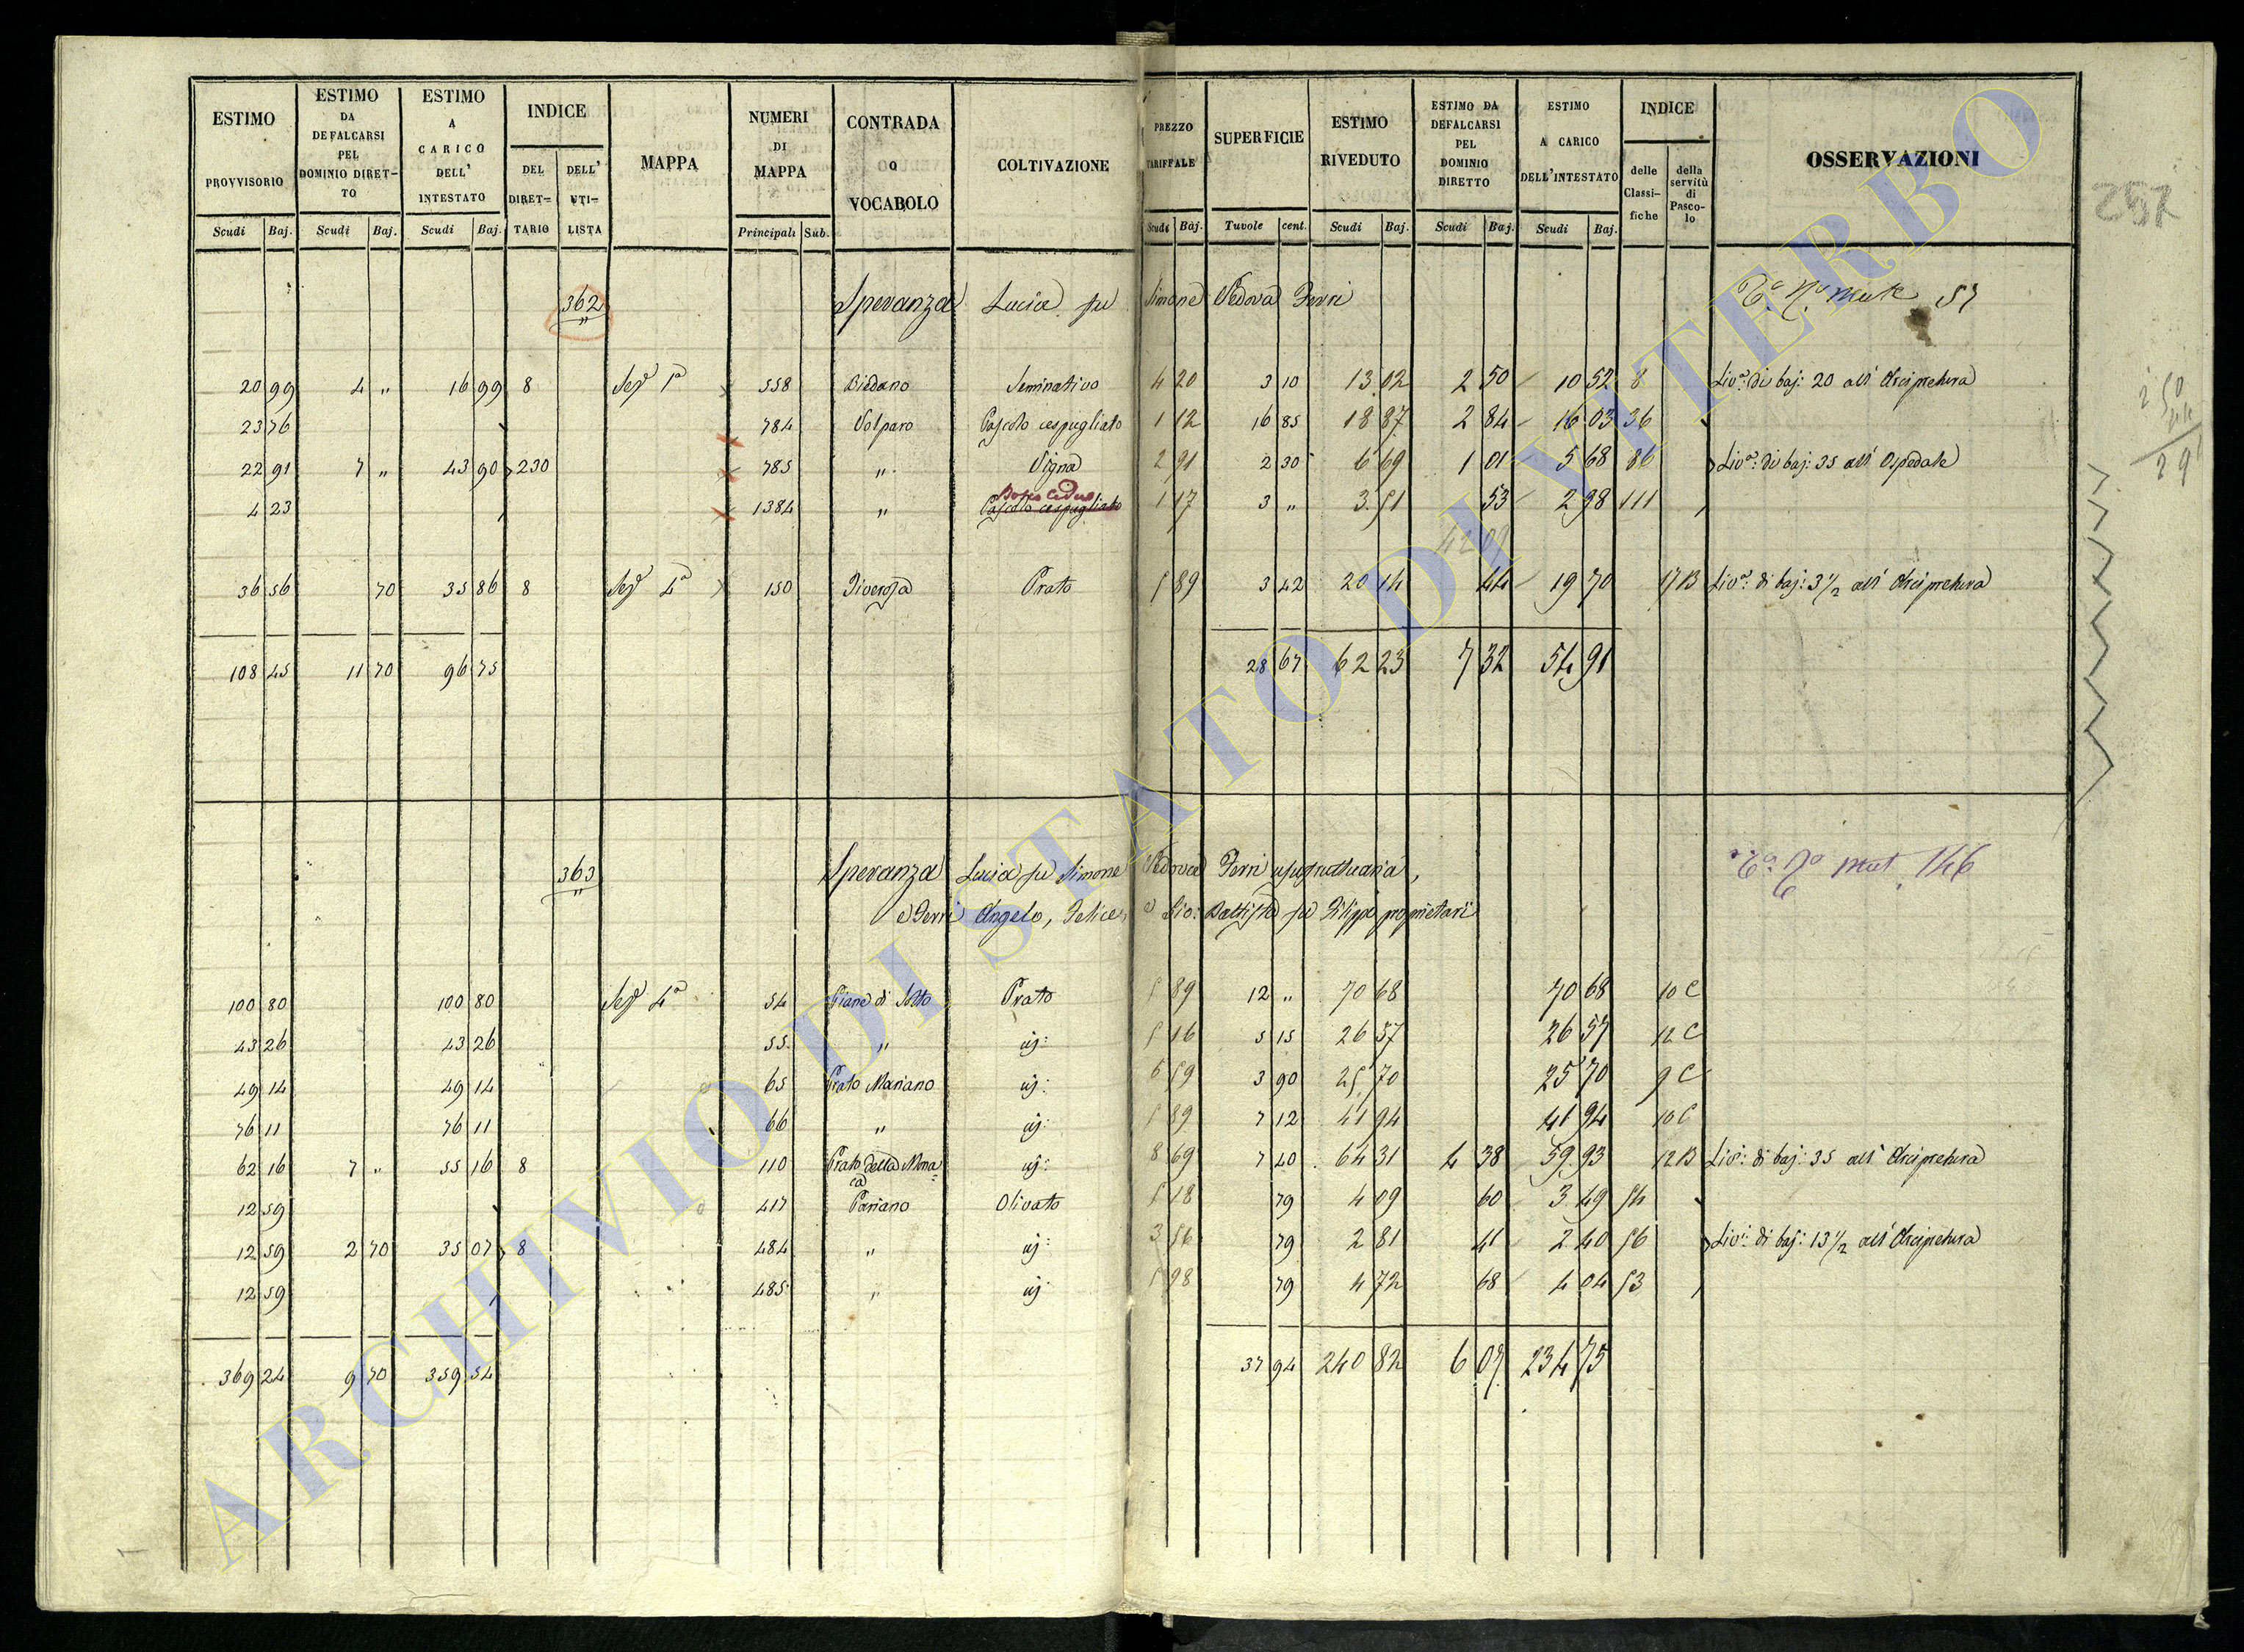 ESTIMO PROVVISORIO Scudi Baj.
ESTIMO DA DEFALCARSI PEL DOMINIO DIRET-TO Scudi Baj.
ESTIMO A CARICO DELL' INTESTATO Scudi Baj.
INDICE DEL DIRET-TARIO DELL' UTI-LISTA
MAPPA
NUMERI DI MAPPA Principali Sub.
CONTRADA O VOCABOLO
COLTIVAZIONE
PREZZO TARIFFALE Scudi Baj.
SUPERFICIE Tavole cent.
ESTIMO RIVEDUTO Scudi Baj.
ESTIMO DA DEFALCARSI PEL DOMINIO DIRETTO Scudi Baj.
ESTIMO A CARICO DELL'INTESTATO Scudi Baj.
INDICE delle Classi-fiche della servitù di Pasco-lo
OSSERVAZIONI
362 Speranza Lucia fu Simone Vedova Ferri 57
20 99 4 " 16 99 8 Sez 1a 558 Biedano Seminativo 4 20 3 10 13 02 2 50 10 52 8 Livo: di baj: 20 all' Arcipretura
23 76 784 Volparo Pascolo cespugliato 1 12 16 85 18 87 2 84 16 03 36
22 91 7 " 43 90 230 785 " Vigna 2 91 2 30 6 69 1 01 5 68 86 Livo: di baj: 35 all' Ospedale
Bosco Ceduo
4 23 1384 " Pascolo cespugliato 1 17 3 " 3 51 53 2 98 111
36 56 70 35 86 8 Sez 4a 150 Prato 5 89 3 42 20 14 44 19 70 17 B Livo: di baj: 3 1/2 all' Arcipretura
108 45 11 70 96 75 28 67 62 23 7 32 54 91
363 Speranza Lucia fu Simone Vedova Ferri usufruttuaria,
e Ferri Angelo, Felice, e Gio: Battista fu Filippo proprietari
146
100 80 100 80 Sez 4a 54 Piane di Sotto Prato 5 89 12 " 70 68 70 68 10 C
43 26 43 26 55 " uj: 5 16 5 15 26 57 26 57 12 C
49 14 49 14 65 Prato Mariano uj: 6 59 3 90 25 70 25 70 9 C
76 11 76 11 66 " uj: 5 89 7 12 41 94 41 94 10 C
62 16 7 " 55 16 8 110 Prato della Mona=ca uj: 8 69 7 40 64 31 4 38 59 93 12 B Livo: di baj: 35 all' Arcipretura
12 59 417 Pariano Olivato 5 18 79 4 09 60 3 49 54
12 59 2 70 35 07 8 484 " uj: 3 56 79 2 81 41 2 40 56 Livo: di baj: 13 1/2 all' Arcipretura
12 59 485 " uj 5 98 79 4 72 68 4 04 53
369 24 9 70 359 54 37 94 240 82 6 07 234 75
ARCHIVIO DI STATO DI VITERBO